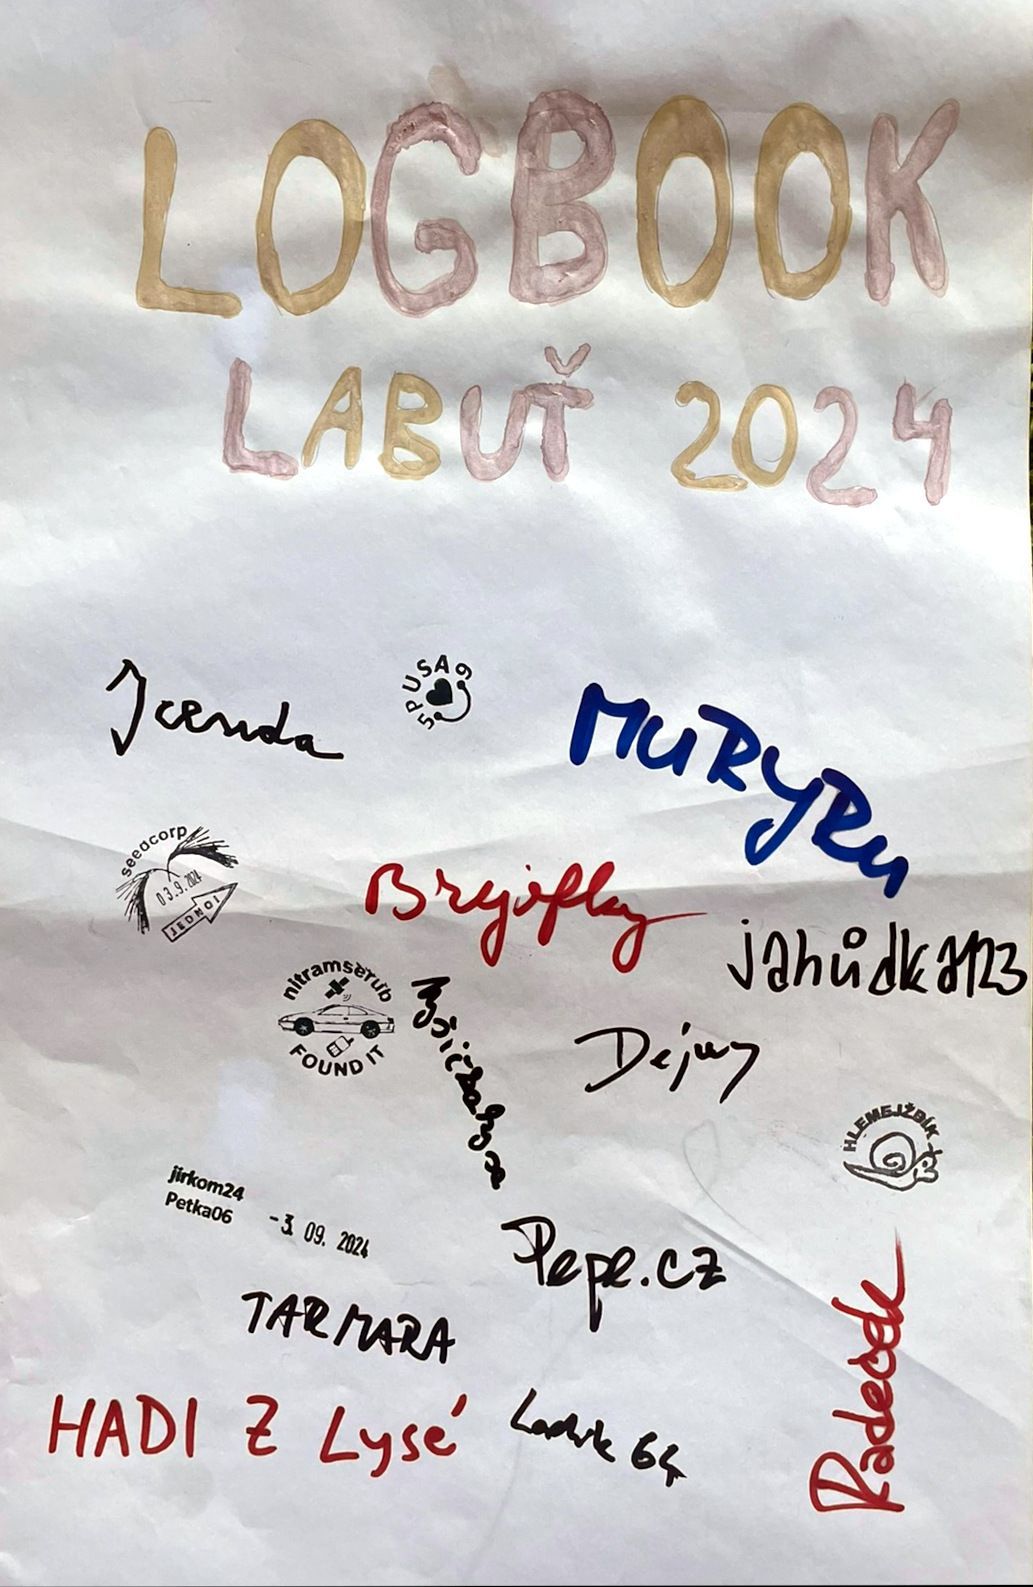 LOGBOOK
LABUŤ 2024
Jcenda
SPUSA9
MURYRu
seedcorp
03.9.2024
JEDNOI
Brejofky
jahůdka123
nitramserub
FOUND IT
Dejvy
HLEMEJŽDÍK
jirkom24
Petka06
-3. 09. 2024
Pepe.cz
TARMARA
Radecek
HADI Z Lysé
Ladik 64